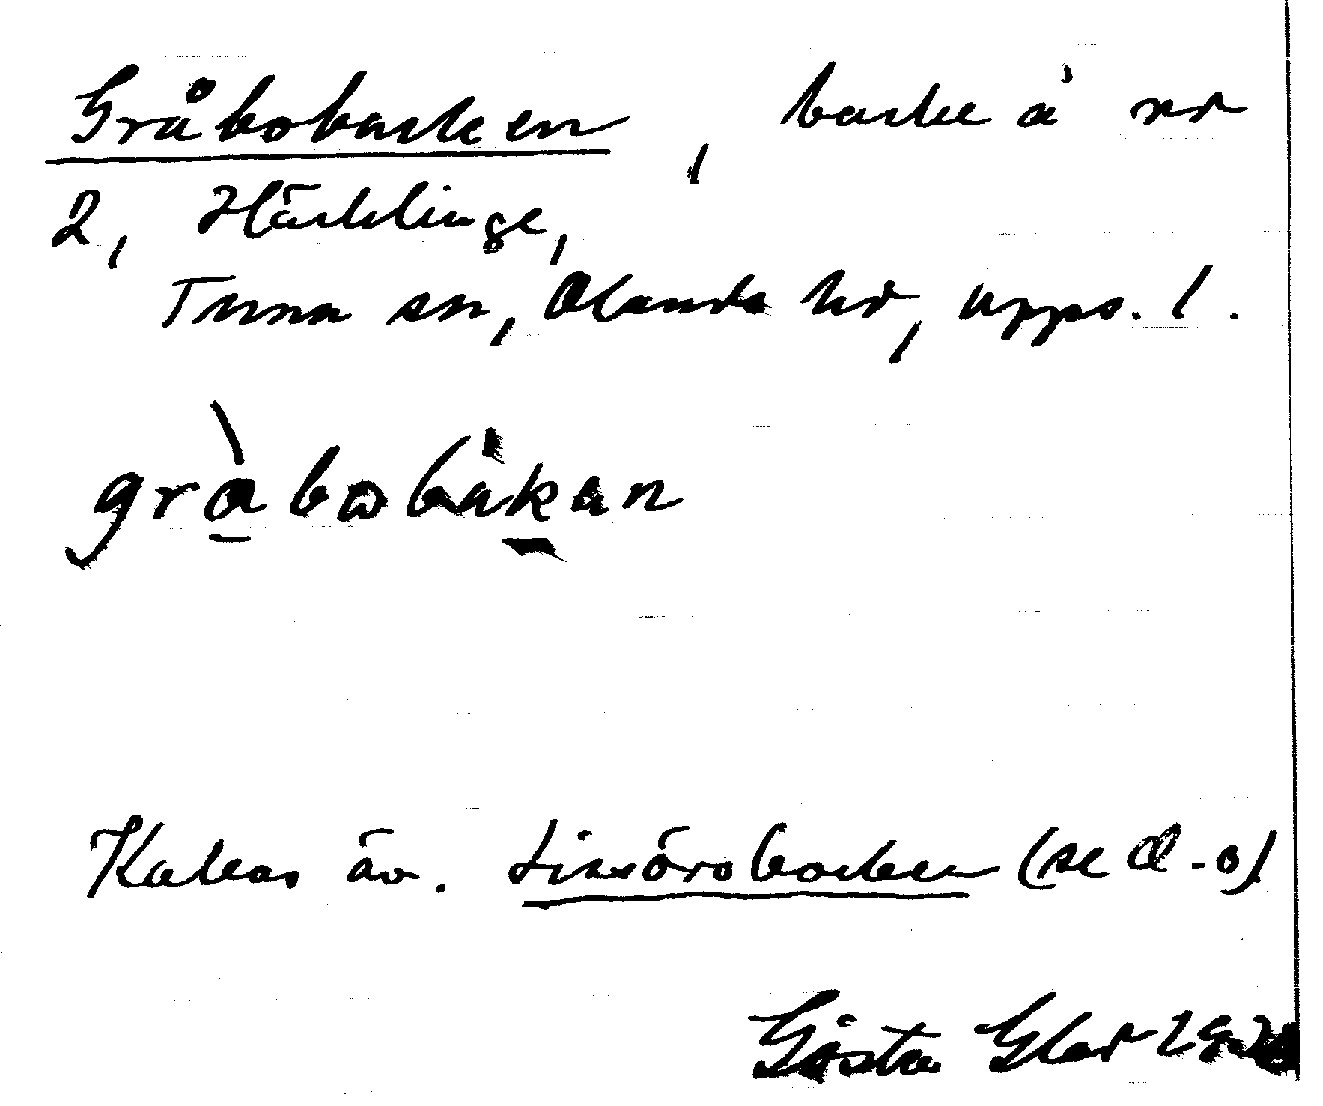 Gråbobacken, backe å nr
2, Häcklinge,
Tuna sn, Olands hd, Upps. l.
gràbobàkan
Kallas äv. Lissörsbacken (se d-o)
Gösta